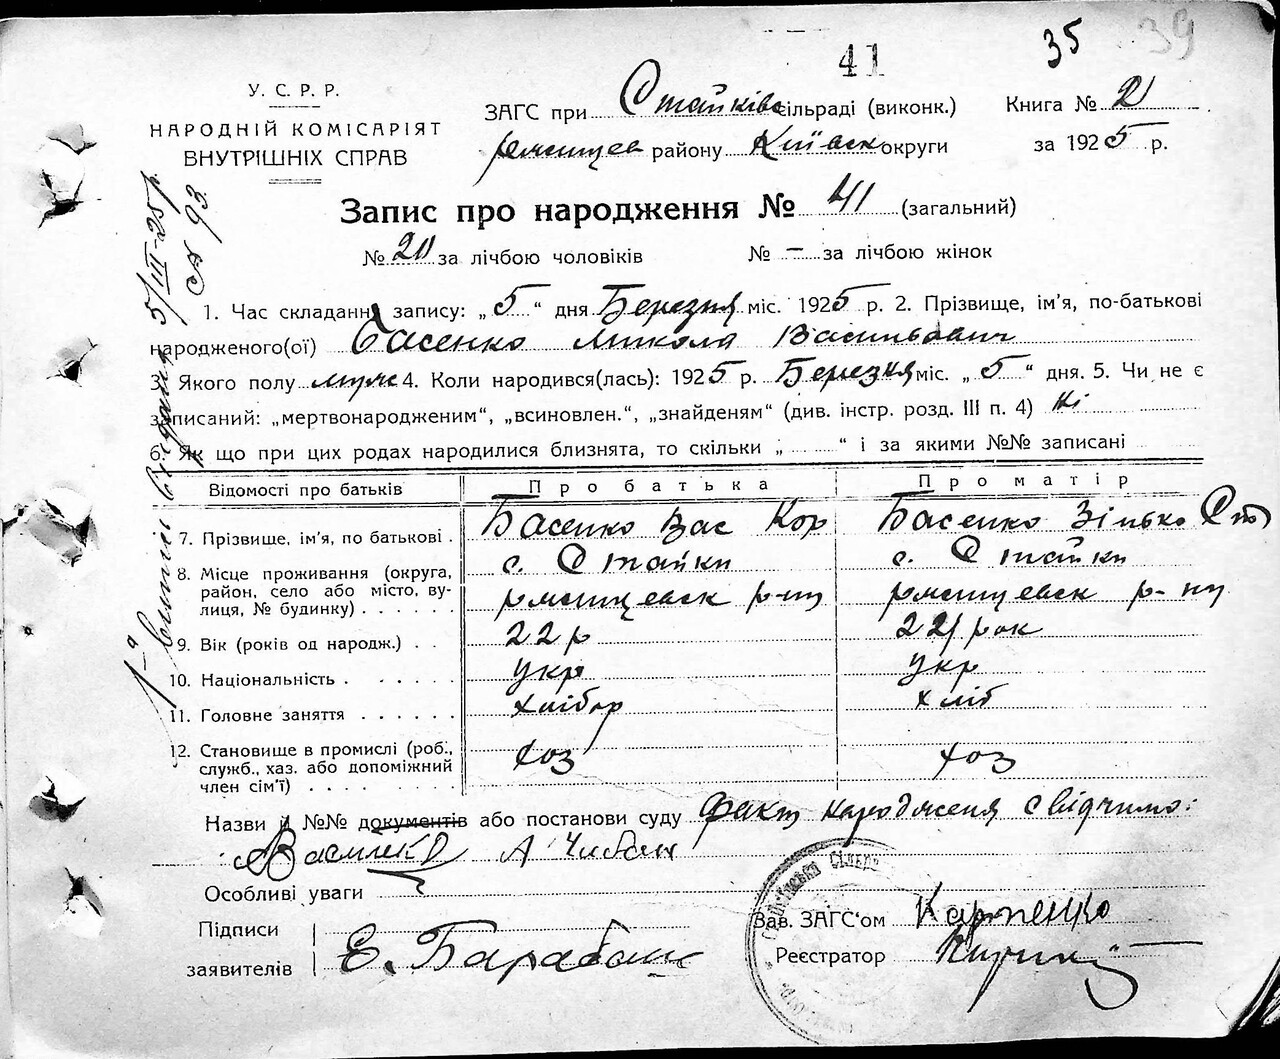 41
35
39
У. С. Р. Р.
НАРОДНІЙ КОМІСАРІЯТ
ВНУТРІШНІХ СПРАВ
ЗАГС при Стайків сільраді (виконк.)
Книга № 2
Ржищев району Київськ округи
за 1925 р.
Запис про народження № 41 (загальний)
№ 20 за лічбою чоловіків № — за лічбою жінок
1. Час складання запису: „5“ дня Березня міс. 1925 р. 2. Прізвище, ім'я, по-батькові
народженого(ої) Басенко Микола Васильович
3. Якого полу муж 4. Коли народився(лась): 1925 р. Березня міс. „5“ дня. 5. Чи не є
записаний: „мертвонародженим“, „всиновлен.“, „знайденям“ (див. інстр. розд. III п. 4) ні
6. Як що при цих родах народилися близнята, то скільки „ “ і за якими №№ записані
Відомості про батьків Про батька Про матір
7. Прізвище, ім'я, по батькові . Басенко Вас Кор Басенко Зінько Ст
8. Місце проживання (округа, с. Стайки с. Стайки
район, село або місто, ву- ржищевск р-ну ржищевск р-ну
лиця, № будинку)
9. Вік (років од народж.) 22 р 22 рок
10. Національність укр укр
11. Головне заняття хлібор хліб
12. Становище в промислі (роб., хоз хоз
служб., хаз. або допоміжний
член сім'ї)
Назви й №№ документів або постанови суду Факт народженя свідчимо:
А Чибан
Особливі уваги
Підписи
заявителів Е. Барабаш
Зав. ЗАГС'ом Карпенко
Реєстратор
витяг видано 5/III-25 р.
№ 93